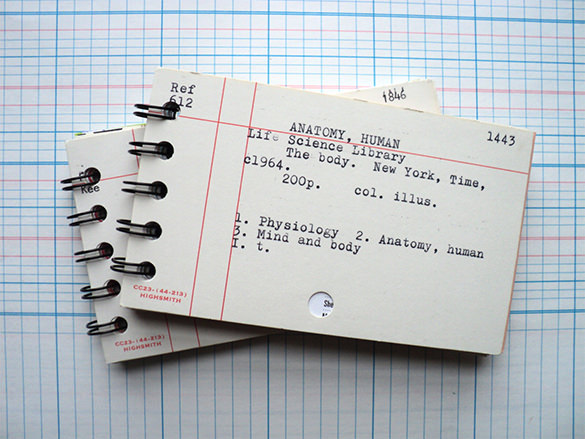 Ref
612
1846
ANATOMY, HUMAN
1443
Life Science Library
The body. New York, Time,
c1964.
200p. col. illus.
1. Physiology 2. Anatomy, human
3. Mind and body
I. t.
She
CC23-(44-213)
HIGHSMITH
CC23-(44-213)
HIGHSMITH